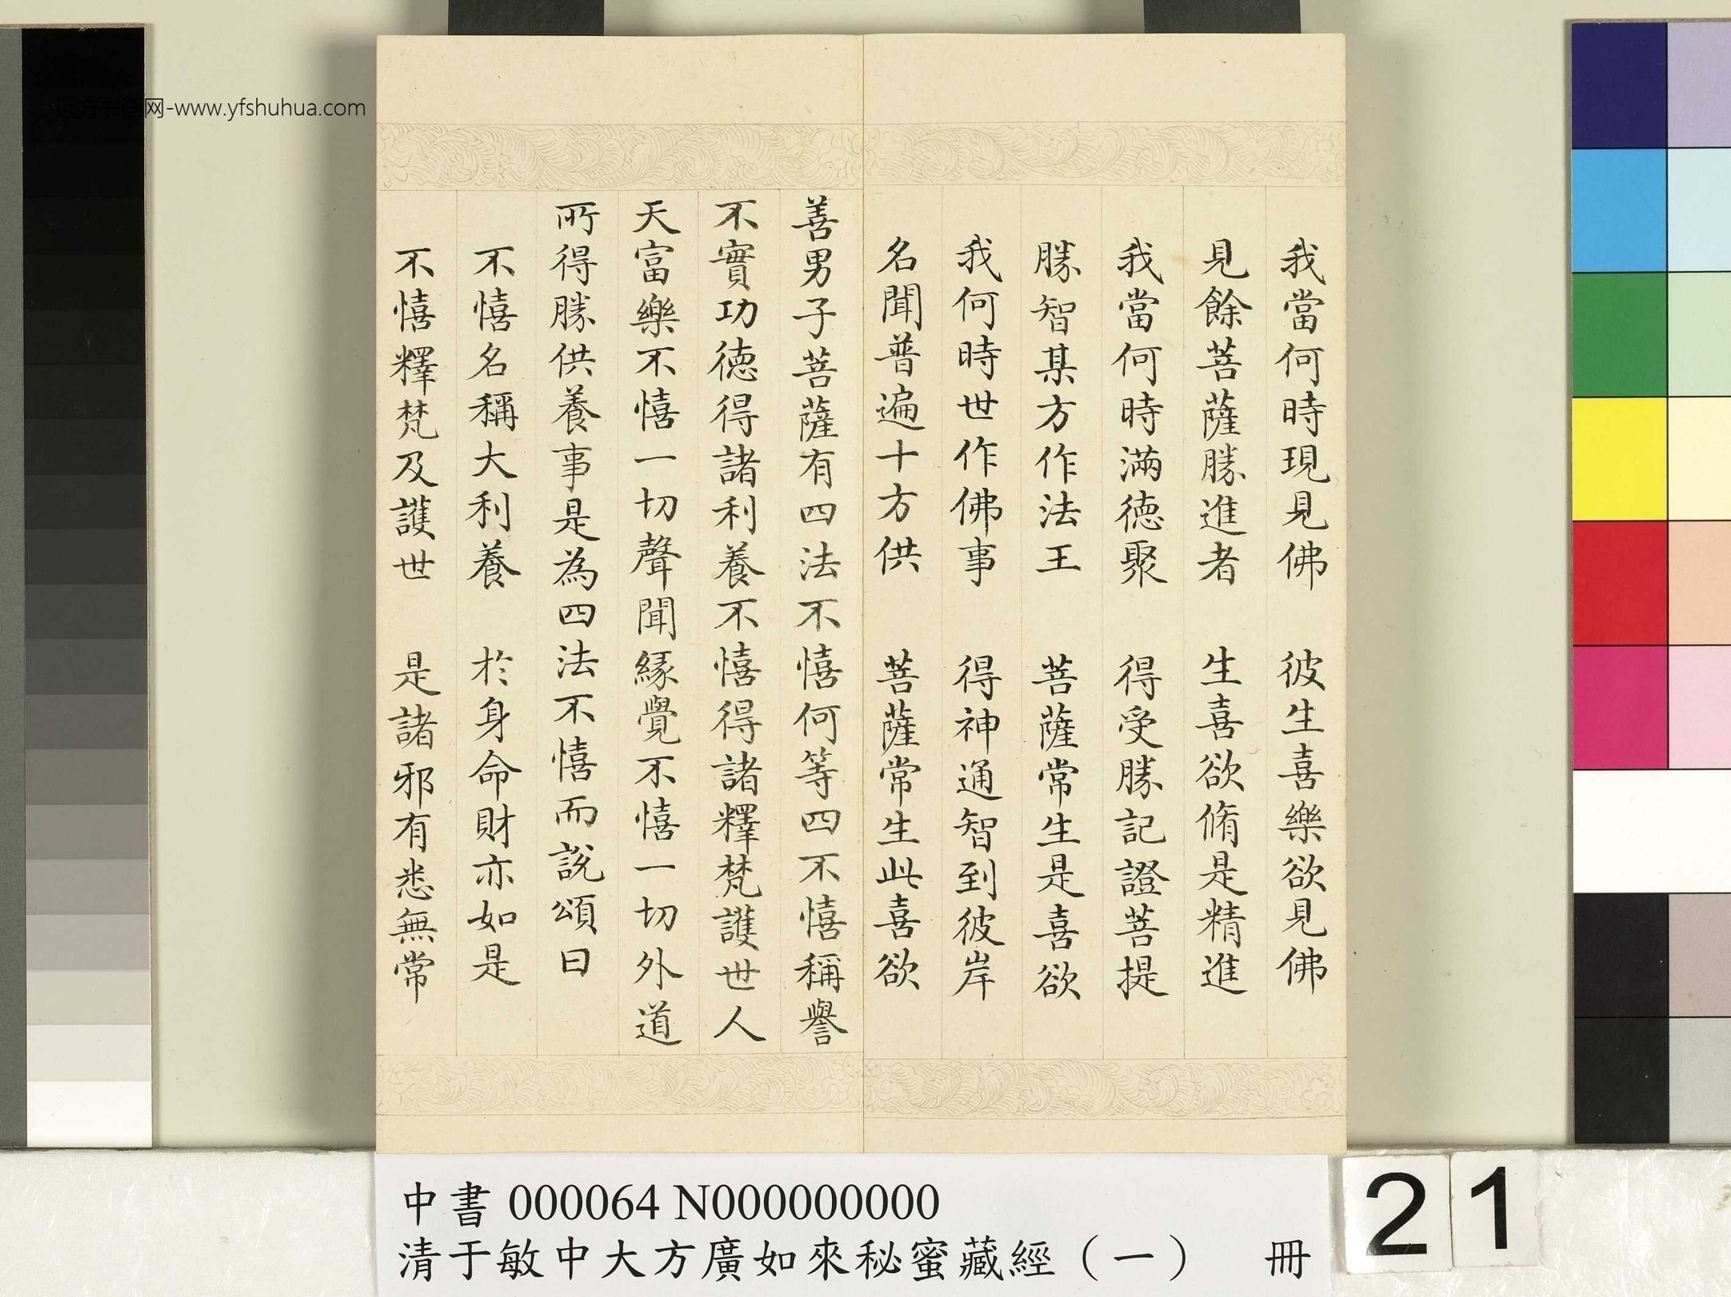 我當何時現見佛 彼生喜樂欲見佛
見餘菩薩勝進者 生喜欲脩是精進
我當何時滿德聚 得受勝記證菩提
勝智某方作法王 菩薩常生是喜欲
我何時世作佛事 得神通智到彼岸
名聞普遍十方供 菩薩常生此喜欲
善男子菩薩有四法不憘何等四不憘稱譽
不實功德得諸利養不憘得諸釋梵護世人
天富樂不憘一切聲聞緣覺不憘一切外道
所得勝供養事是為四法不憘而說頌曰
不憘名稱大利養 於身命財亦如是
不憘釋梵及護世 是諸邪有悉無常
网-www.yfshuhua.com
中書 000064 N000000000
清于敏中大方廣如來秘蜜藏經（一） 冊
21